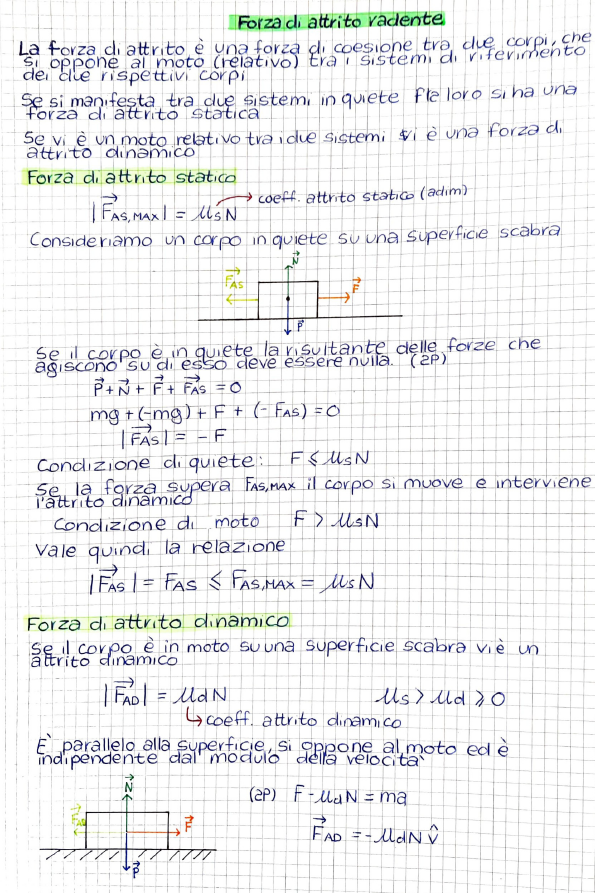 Forza di attrito radente
La forza di attrito è una forza di coesione tra due corpi, che
si oppone al moto (relativo) tra i sistemi di riferimento
dei due rispettivi corpi
Se si manifesta tra due sistemi in quiete fra loro si ha una
forza di attrito statica
Se vi è un moto relativo tra i due sistemi vi è una forza di
attrito dinamico
Forza di attrito statico
|F⃗AS,MAX| = μsN → coeff. attrito statico (adim)
Consideriamo un corpo in quiete su una superficie scabra
N⃗
F⃗AS
F⃗
P⃗
Se il corpo è in quiete la risultante delle forze che
agiscono su di esso deve essere nulla. (2P)
P⃗ + N⃗ + F⃗ + F⃗AS = 0
mg + (-mg) + F + (-FAS) = 0
|F⃗AS| = - F
Condizione di quiete: F ⩽ μsN
Se la forza supera FAS,MAX il corpo si muove e interviene
l'attrito dinamico
Condizione di moto F > μsN
Vale quindi la relazione
|F⃗AS| = FAS ⩽ FAS,MAX = μsN
Forza di attrito dinamico
Se il corpo è in moto su una superficie scabra vi è un
attrito dinamico
|F⃗AD| = μdN μs > μd ⩾ 0
↳ coeff. attrito dinamico
È parallelo alla superficie, si oppone al moto ed è
indipendente dal modulo della velocità
N⃗
F⃗AD
F⃗
P⃗
(2P) F - μdN = ma
F⃗AD = - μdN v̂